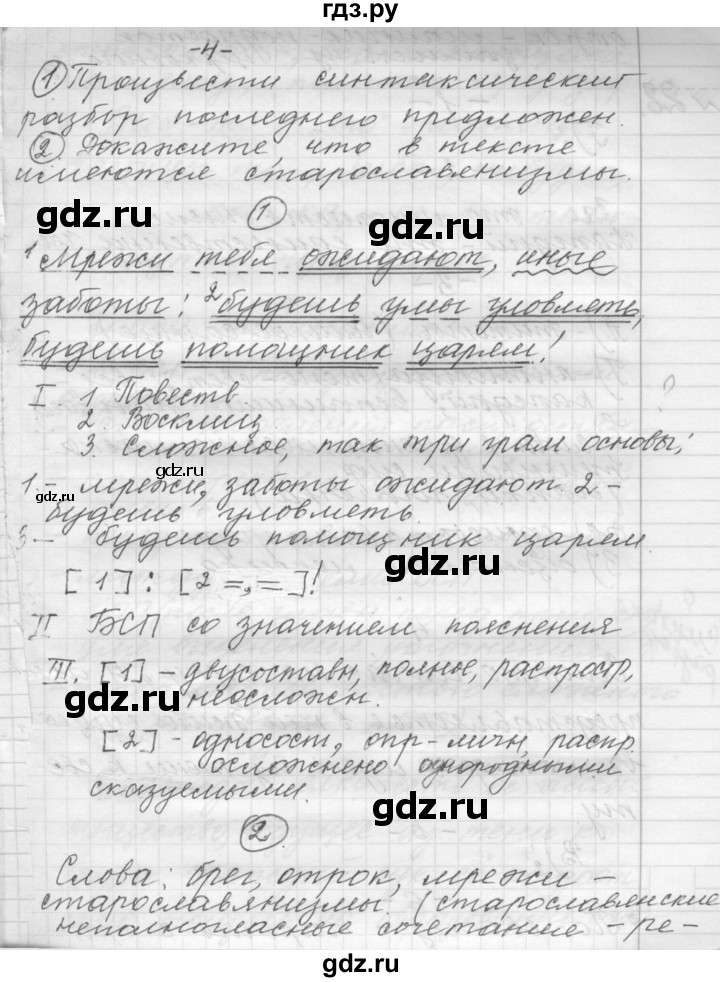 гдз.ру
-4-
① Произвести синтаксический
разбор последнего предложен.
② Докажите, что в тексте
имеются старославянизмы.
gdz.ru
gdz.ru
①
¹Мрежи тебя ожидают, иные
заботы: ²будешь умы уловлять,
будешь помощник царям!
I 1. Повеств.
2. Восклиц.
3. Сложное, так три грам. основы;
gdz.ru
gdz.ru
1.- мрежи, заботы ожидают 2-
будешь уловлять.
3- будешь помощник царям.
[1]: [2 =, =]!
gdz.ru
II БСП со значением пояснения
III. [1] - двусоставн, полное, распростр,
неосложн.
gdz.ru
[2] - односост, опр-личн, распр.
осложнено однородными
сказуемыми.
gdz.ru
②
Слова: брег, отрок, мрежи -
старославянизмы. (старославянские
неполногласные сочетание -ре-
gdz.ru
gdz.ru